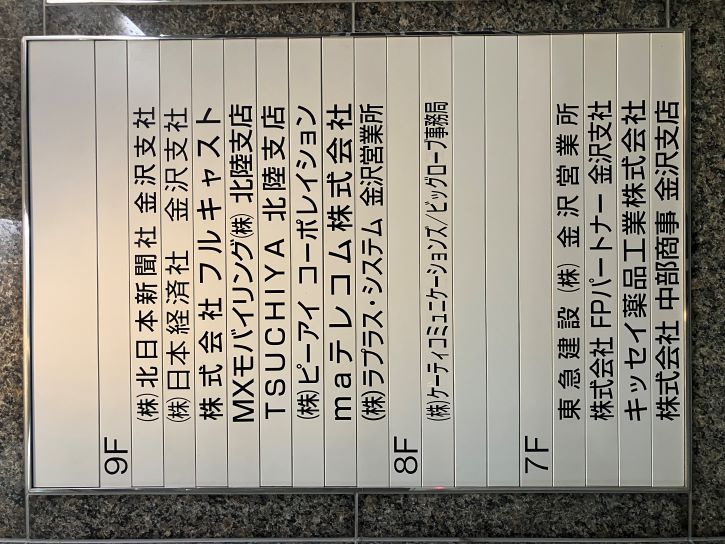 9F
(株)北日本新聞社 金沢支社
(株)日本経済社 金沢支社
株式会社フルキャスト
MXモバイリング(株) 北陸支店
TSUCHIYA 北陸支店
(株)ピーアイ コーポレイション
maテレコム株式会社
(株)ラプラス・システム 金沢営業所
8F
(株)ケーティコミュニケーションズ/ビッグローブ事務局
7F
東急建設(株) 金沢営業所
株式会社 FPパートナー 金沢支社
キッセイ薬品工業株式会社
株式会社 中部商事 金沢支店